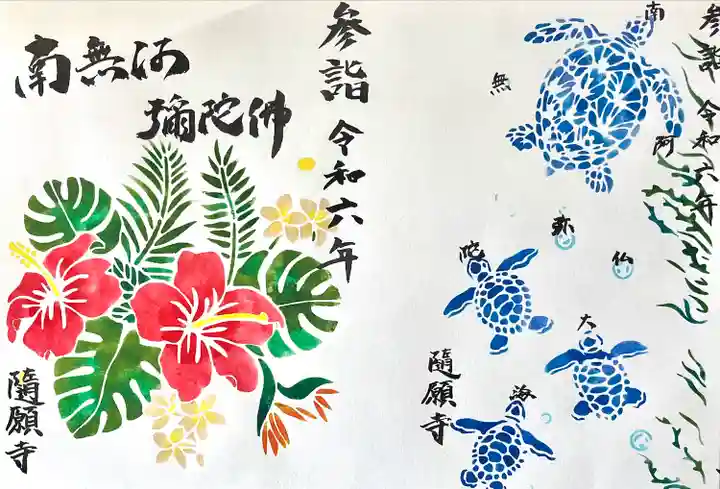 南無阿
彌陀佛
参詣 令和六年
隨願寺
南
無
阿
弥
陀
仏
大
海
参詣 令和六年
隨願寺